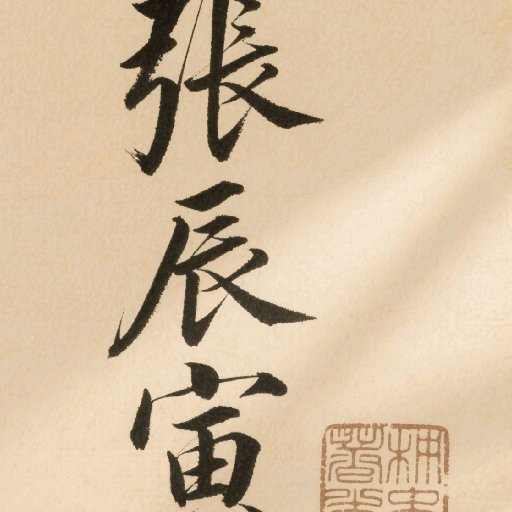 張辰寅